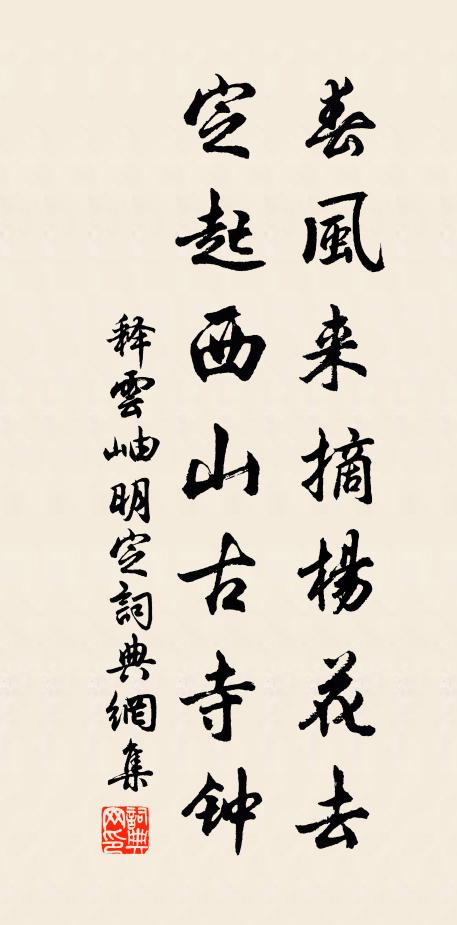 春風来摘楊花去
定起西山古寺钟
释雲岫明定詞典網集
詞典网印